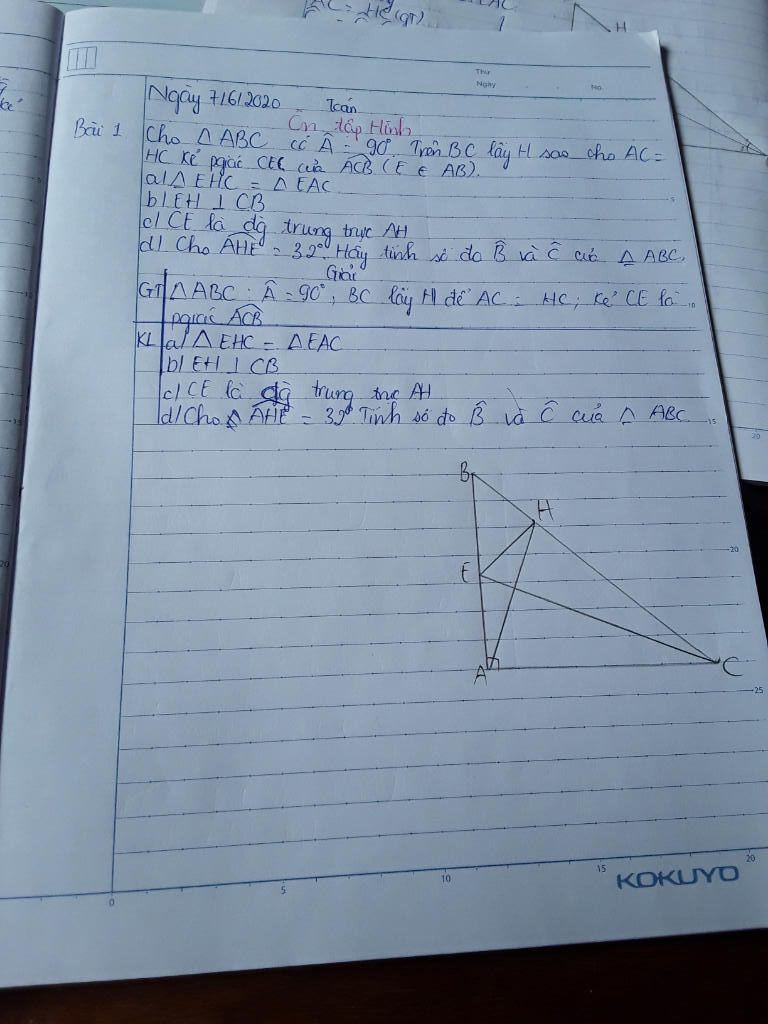 AC = HC (GT)
H
Thứ
Ngày No.
Ngày 7/6/2020 Toán
Ôn tập Hình
Bài 1 Cho △ ABC có Â = 90° Trên BC lấy H sao cho AC =
HC kẻ pgiác của ACB (E ∈ AB).
a/ △ EHC = △ EAC
b/ EH ⊥ CB
c/ CE là đg trung trực AH
d/ Cho AHE = 32°. Hãy tính số đo B̂ và Ĉ của △ ABC.
Giải
GT △ ABC : Â = 90°, BC lấy H để AC = HC; kẻ CE là
pgiác ACB
KL a/ △ EHC = △ EAC
b/ EH ⊥ CB
c/ CE là đg trung trực AH
d/ Cho AHE = 32° Tính số đo B̂ và Ĉ của △ ABC
B
H
E
A
C
5
10
15
20
25
0 5 10 15 20
KOKUYO